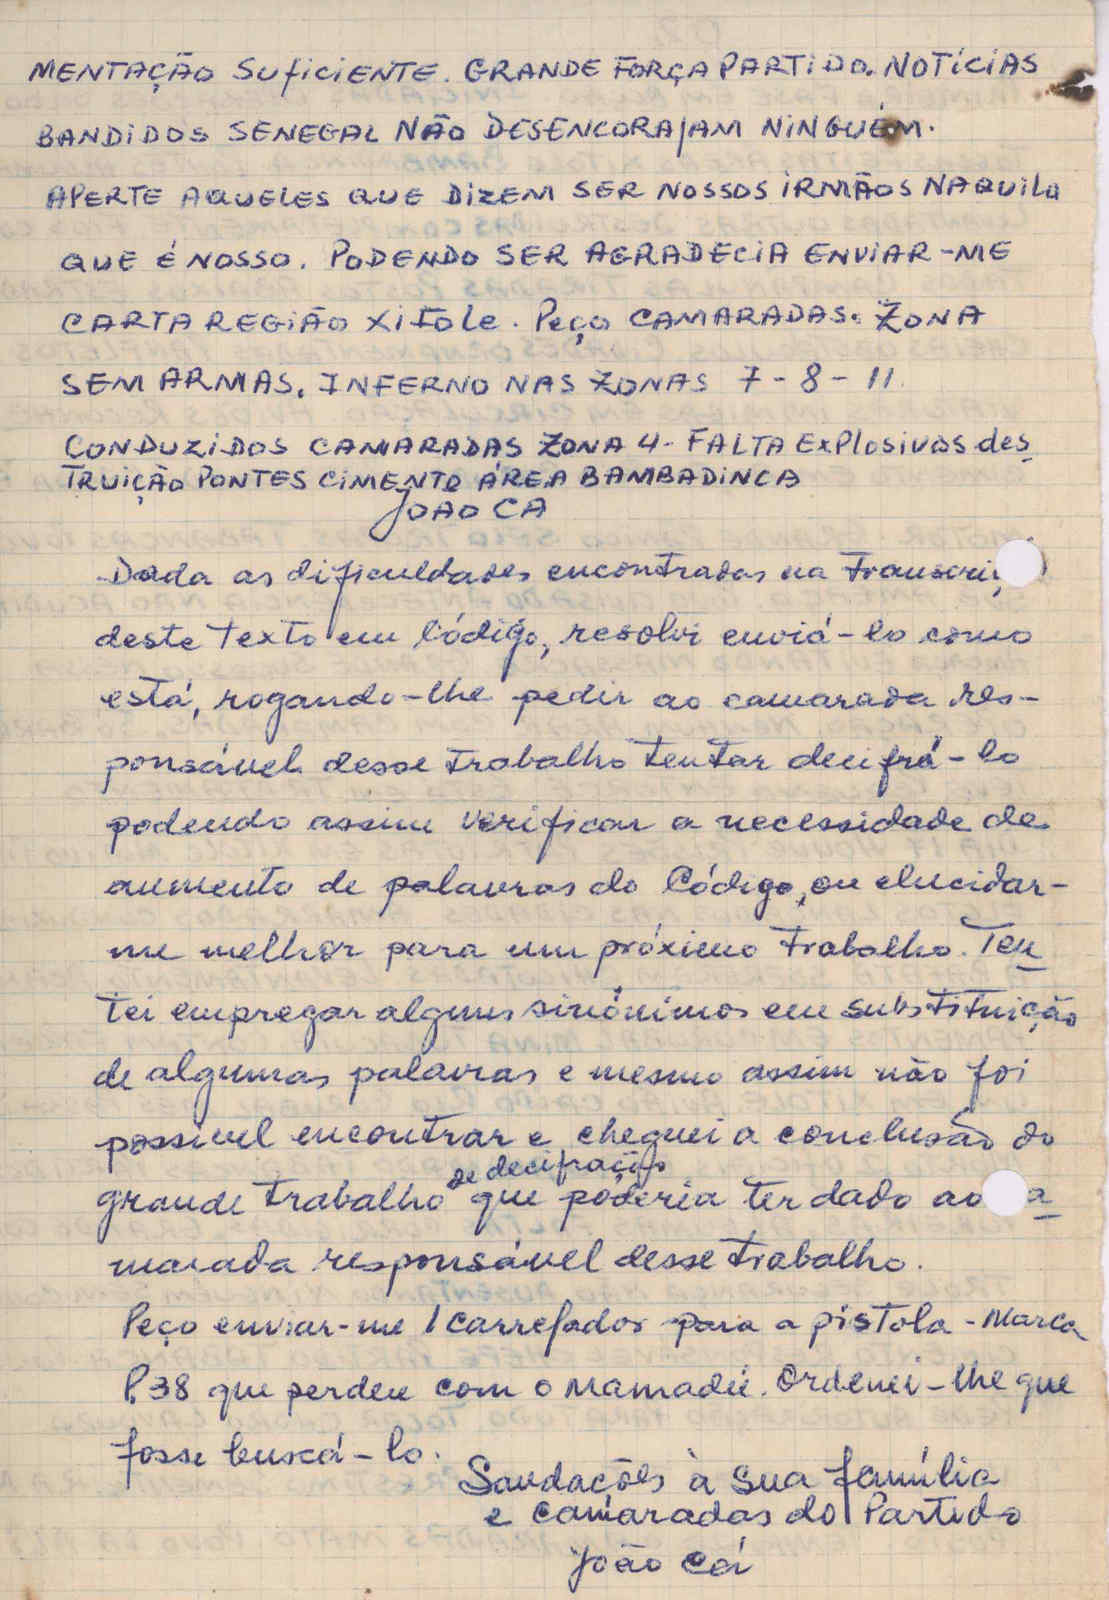 MENTAÇÃO SUFICIENTE. GRANDE FORÇA PARTIDO. NOTÍCIAS
BANDIDOS SENEGAL NÃO DESENCORAJAM NINGUÉM.
APERTE AQUELES QUE DIZEM SER NOSSOS IRMÃOS NAQUILO
QUE É NOSSO. PODENDO SER AGRADECIA ENVIAR-ME
CARTA REGIÃO XITOLE. PEÇO CAMARADAS. ZONA
SEM ARMAS. INFERNO NAS ZONAS 7-8-11.
CONDUZIDOS CAMARADAS ZONA 4- FALTA EXPLOSIVOS des
TRUIÇÃO PONTES CIMENTO ÁREA BAMBADINCA
JOAO CA
Dada as dificuldades encontradas na transcri
deste texto em Código, resolvi enviá-lo como
está, rogando-lhe pedir ao camarada res-
ponsável desse trabalho tentar decifrá-lo
podendo assim verificar a necessidade de
aumento de palavras do Código, ou elucidar-
me melhor para um próximo trabalho. Ten
tei empregar alguns sinónimos em substituição
de algumas palavras e mesmo assim não foi
possivel encontrar e cheguei a conclusão do
de decifração
grande trabalho que poderia ter dado ao a
marada responsável desse trabalho.
Peço enviar-me 1 carregador para a pistola - Marca
P.38 que perdeu com o Mamadú. Ordenei-lhe que
fosse buscá-lo.
Saudações à sua família
e camaradas do Partido
João Cá